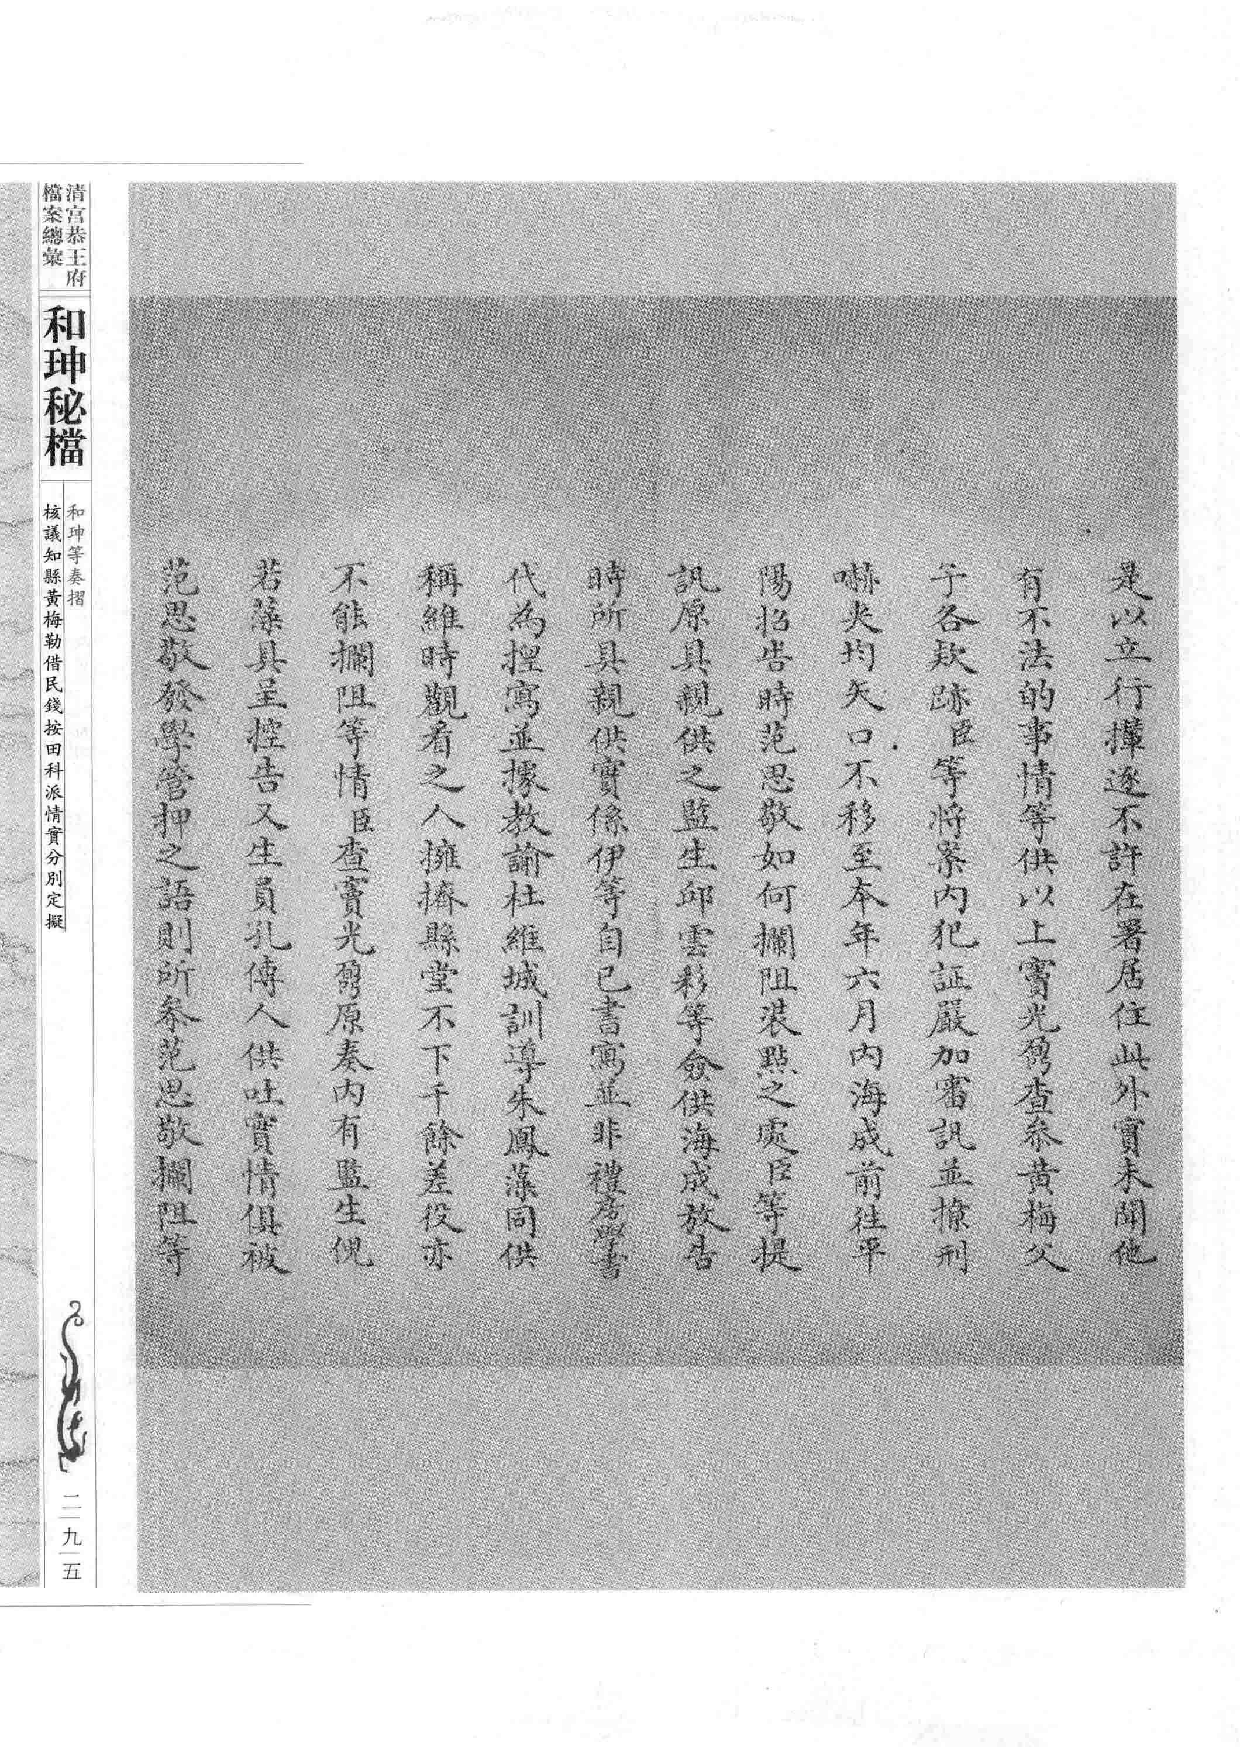 是以立行攆逐不許在署居住此外實未聞他
有不法的事情等供以上竇光鼐查叅黃梅父
子各欵跡臣等將案内犯証嚴加審訊並撩刑
嚇夾均矢口不移至本年六月内海成前往平
陽招告時范思敬如何攔阻裝點之處臣等提
訊原具親供之監生邱雲彩等僉供海成放告
時所具親供實係伊等自己書寫並非禮房書
代為揑寫並據教諭杜維城訓導朱鳳藻同供
稱維時觀看之人擁擠縣堂不下千餘差役亦
不能攔阻等情臣查竇光鼐原奏内有監生倪
若藻具呈控告又生員孔傳人供吐實情俱被
范思敬發學管押之語則所叅范思敬攔阻等
清宮恭王府
檔案總彙
和珅秘檔
和珅等奏摺
核議知縣黃梅勒借民錢按田科派情實分別定擬
二九五